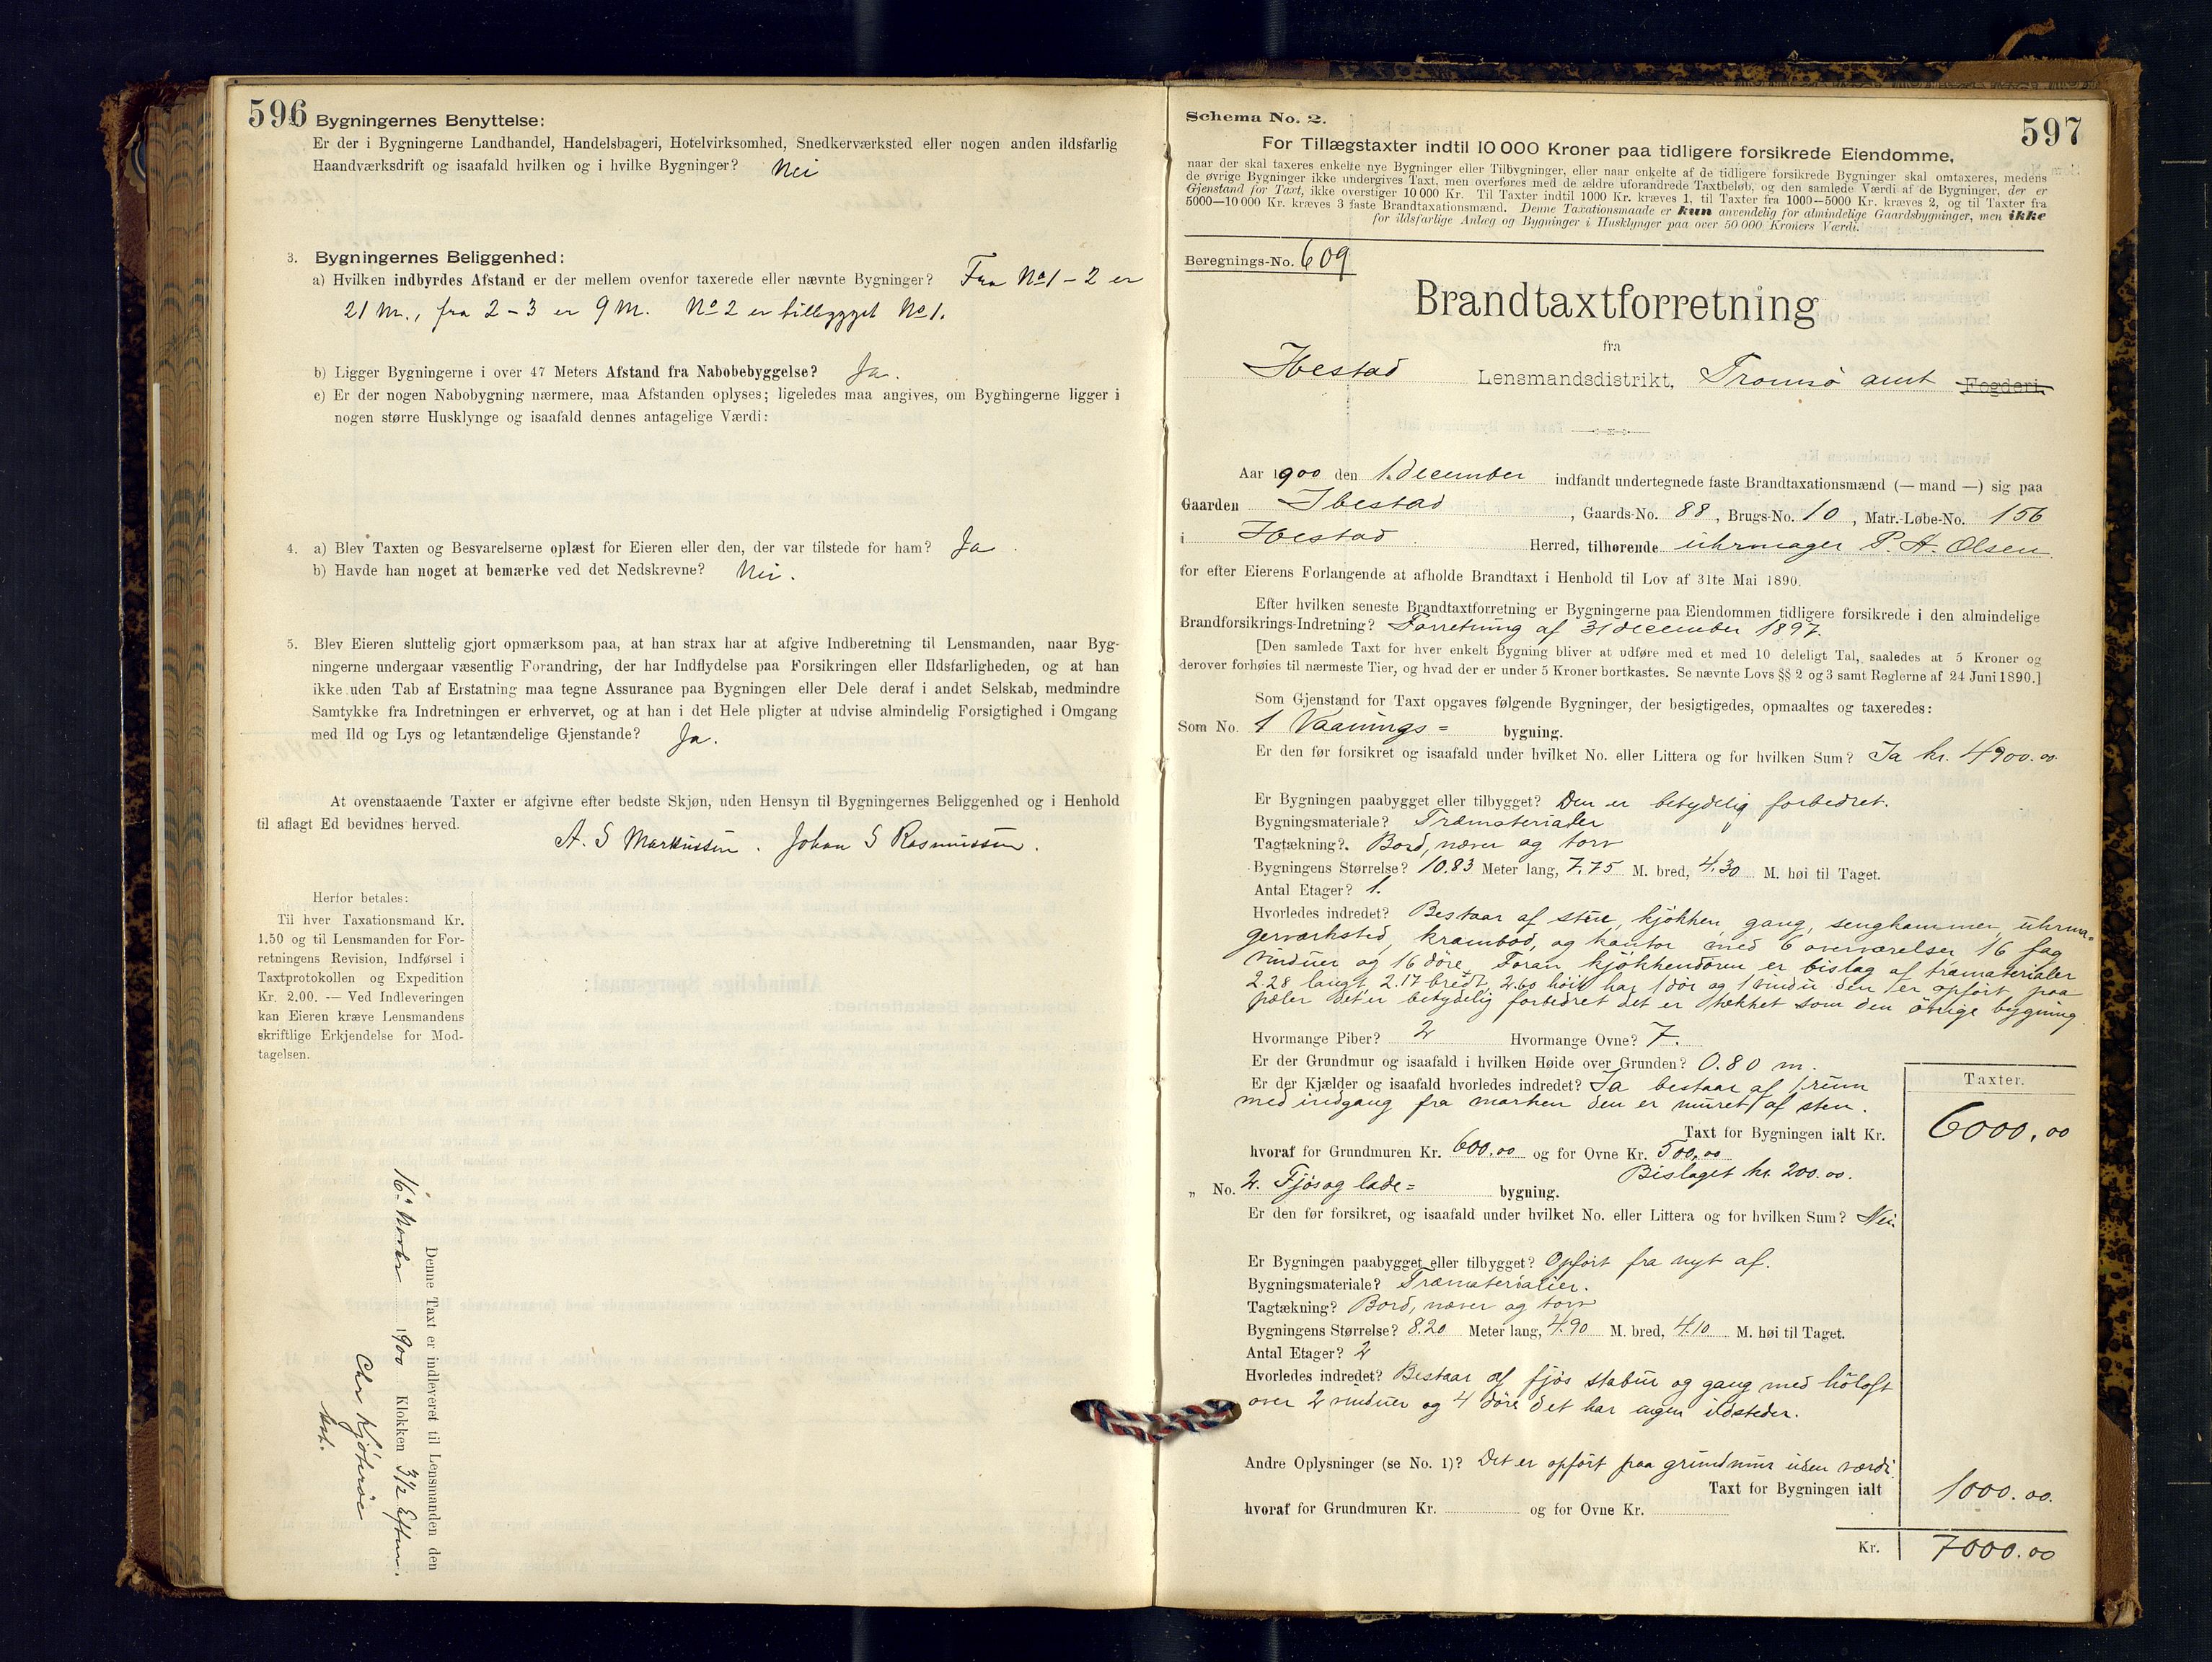 596
Bygningernes Benyttelse:
Er der i Bygningerne Landhandel, Handelsbageri, Hotelvirksomhed, Snedkerværksted eller nogen anden ildsfarlig
Haandværksdrift og isaafald hvilken og i hvilke Bygninger? Nei
3. Bygningernes Beliggenhed:
a) Hvilken indbyrdes Afstand er der mellem ovenfor taxerede eller nævnte Bygninger? Fra No 1 - 2 er
21 M., fra 2 - 3 er 9 M. No 2 er tilbygget No 1.
b) Ligger Bygningerne i over 47 Meters Afstand fra Nabobebyggelse? Ja.
c) Er der nogen Nabobygning nærmere, maa Afstanden oplyses; ligeledes maa angives, om Bygningerne ligger i
nogen større Husklynge og isaafald dennes antagelige Værdi:
4. a) Blev Taxten og Besvarelserne oplæst for Eieren eller den, der var tilstede for ham? Ja.
b) Havde han noget at bemærke ved det Nedskrevne? Nei.
5. Blev Eieren sluttelig gjort opmærksom paa, at han strax har at afgive Indberetning til Lensmanden, naar Byg-
ningerne undergaar væsentlig Forandring, der har Indflydelse paa Forsikringen eller Ildsfarligheden, og at han
ikke uden Tab af Erstatning maa tegne Assurance paa Bygningen eller Dele deraf i andet Selskab, medmindre
Samtykke fra Indretningen er erhvervet, og at han i det Hele pligter at udvise almindelig Forsigtighed i Omgang
med Ild og Lys og letantændelige Gjenstande? Ja.
At ovenstaaende Taxter er afgivne efter bedste Skjøn, uden Hensyn til Bygningernes Beliggenhed og i Henhold
til aflagt Ed bevidnes herved.
A. S Markussen. Johan S Rasmussen.
Herfor betales:
Til hver Taxationsmand Kr.
1.50 og til Lensmanden for For-
retningens Revision, Indførsel i
Taxtprotokollen og Expedition
Kr. 2.00. — Ved Indleveringen
kan Eieren kræve Lensmandens
skriftlige Erkjendelse for Mod-
tagelsen.
Denne Taxt er indleveret til Lensmanden den
16. Novbr 1900 Klokken 3 1/2 Efterm.
Chr
597
Schema No. 2.
For Tillægstaxter indtil 10 000 Kroner paa tidligere forsikrede Eiendomme,
naar der skal taxeres enkelte nye Bygninger eller Tilbygninger, eller naar enkelte af de tidligere forsikrede Bygninger skal omtaxeres, medens
de øvrige Bygninger ikke undergives Taxt, men overføres med de ældre uforandrede Taxtbeløb, og den samlede Værdi af de Bygninger, der er
Gjenstand for Taxt, ikke overstiger 10 000 Kr. Til Taxter indtil 1000 Kr. kræves 1, til Taxter fra 1000—5000 Kr. kræves 2, og til Taxter fra
5000—10 000 Kr. kræves 3 faste Brandtaxationsmænd. Denne Taxationsmaade er kun anvendelig for almindelige Gaardsbygninger, men ikke
for ildsfarlige Anlæg og Bygninger i Husklynger paa over 50 000 Kroners Værdi.
Beregnings-No. 609
Brandtaxtforretning
fra
Ibestad Lensmandsdistrikt, Tromsø amt Fogderi.
Aar 1900 den 1. december indfandt undertegnede faste Brandtaxationsmænd (— mand —) sig paa
Gaarden Ibestad, Gaards-No. 88, Brugs-No. 10, Matr.-Løbe-No. 156
i Ibestad Herred, tilhørende uhrmager P. A. Olsen
for efter Eierens Forlangende at afholde Brandtaxt i Henhold til Lov af 31te Mai 1890.
Efter hvilken seneste Brandtaxtforretning er Bygningerne paa Eiendommen tidligere forsikrede i den almindelige
Brandforsikrings-Indretning? Forretning af 31 december 1897.
[Den samlede Taxt for hver enkelt Bygning bliver at udføre med et med 10 deleligt Tal, saaledes at 5 Kroner og
derover forhøies til nærmeste Tier, og hvad der er under 5 Kroner bortkastes. Se nævnte Lovs §§ 2 og 3 samt Reglerne af 24 Juni 1890.]
Som Gjenstand for Taxt opgaves følgende Bygninger, der besigtigedes, opmaaltes og taxeredes:
Som No. 1 Vaanings= bygning.
Er den før forsikret og isaafald under hvilket No. eller Littera og for hvilken Sum? Ja kr. 4900.00
Er Bygningen paabygget eller tilbygget? Den er betydelig forbedret.
Bygningsmateriale? Træmaterialer
Tagtækning? Bord, næver og torv
Bygningens Størrelse? 10.83 Meter lang, 7.75 M. bred, 4.30 M. høi til Taget.
Antal Etager? 1.
Hvorledes indredet? Bestaar af stue, kjøkken, gang, sengkammer, uhrma-
gerværksted, krambod, og kontor med 6 overværelser 16 fag
vinduer og 16 döre. Foran kjøkkendören er bislag af træmaterialer
2.28 langt, 2.17 bredt, 2.60 höit har 1 dör og 1 vindu den er opført paa
pæler det er betydelig forbedret det er tækket som den övrige bygning.
Hvormange Piber? 2 Hvormange Ovne? 7.
Er der Grundmur og isaafald i hvilken Høide over Grunden? 0.80 m.
Er der Kjælder og isaafald hvorledes indredet? Ja bestaar af 1 rum
med indgang fra marken den er muret af sten.
Taxter.
Taxt for Bygningen ialt Kr. 6000,00
hvoraf for Grundmuren Kr. 600.00 og for Ovne Kr. 500,00
Bislaget kr. 200.00.
„ No. 2. Fjös og lade= bygning.
Er den før forsikret, og isaafald under hvilket No. eller Littera og for hvilken Sum? Nei.
Er Bygningen paabygget eller tilbygget? Opfört fra nyt af.
Bygningsmateriale? Træmaterialier.
Tagtækning? Bord, næver og torv
Bygningens Størrelse? 8.20 Meter lang, 4.90 M. bred, 4.10 M. høi til Taget.
Antal Etager? 2
Hvorledes indredet? Bestaar af fjös stabur og gang med höloft
over 2 vinduer og 4 döre det har ingen ildsteder.
Andre Oplysninger (se No. 1)? Det er opfört paa grundmur uden værdi
Taxt for Bygningen ialt 1000.00.
hvoraf for Grundmuren Kr. og for Ovne Kr.
Kr. 7000.00